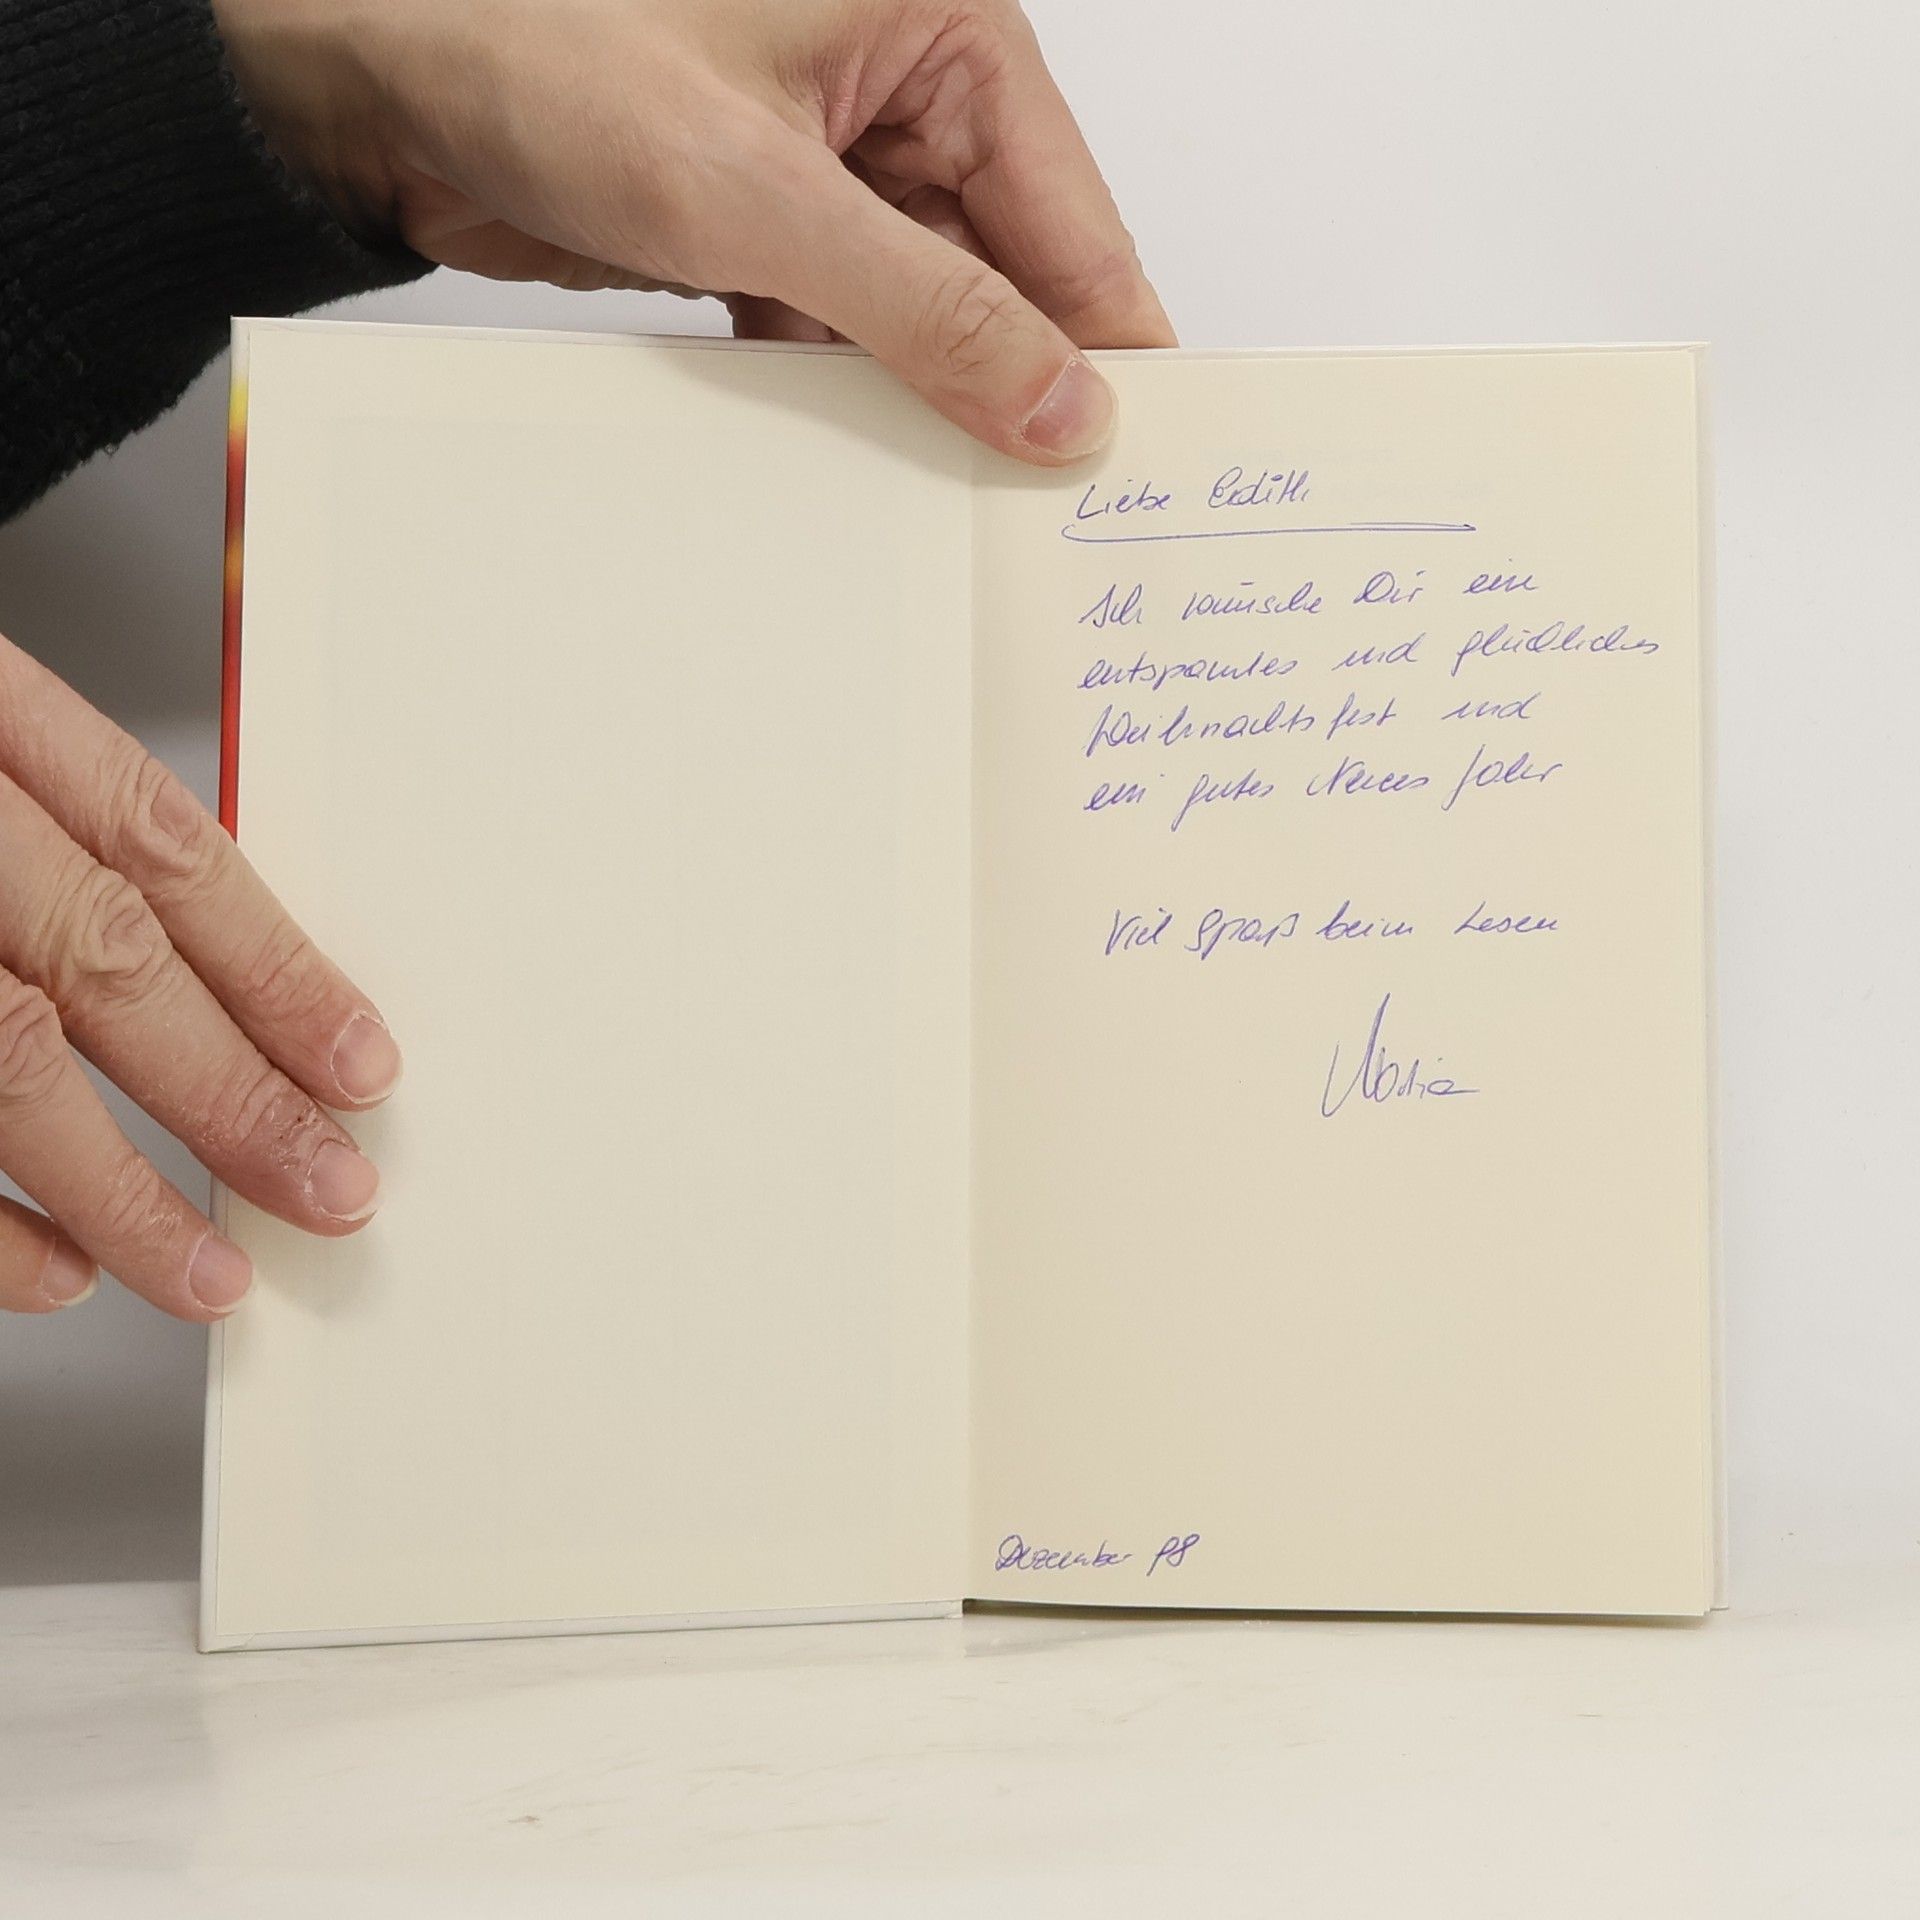 Liebe Edith
Ich wünsche Dir ein
entspanntes und glückliches
Weihnachtsfest und
ein gutes Neues Jahr
Viel Spaß beim Lesen
Maria
Dezember 98